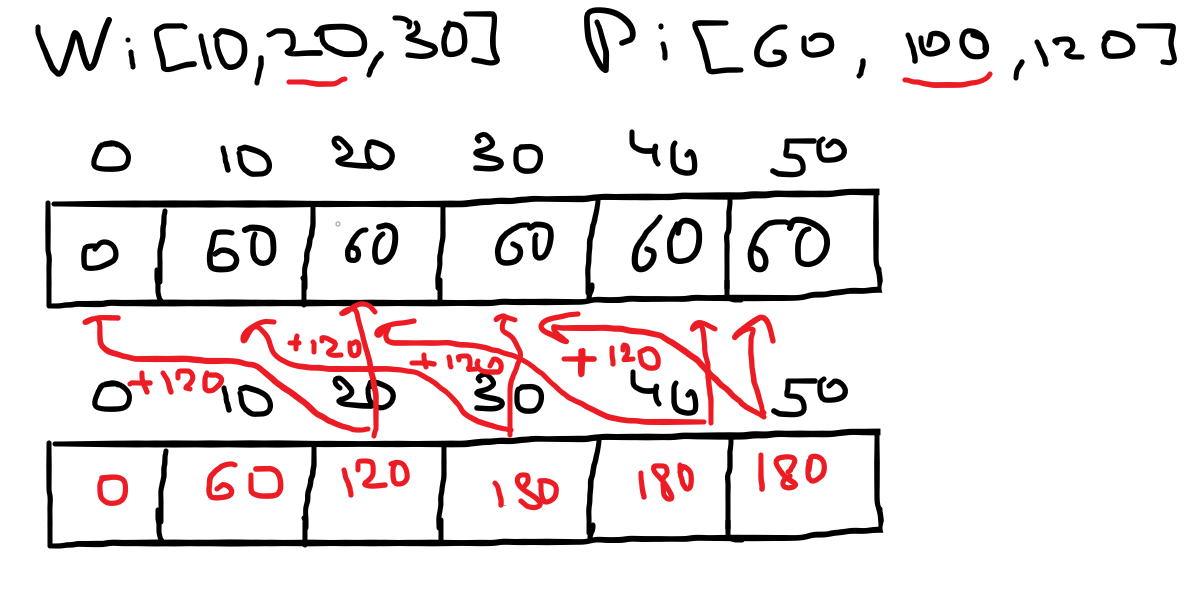 Wi[10,20,30] Pi[60, 100,120]
0 10 20 30 40 50
0 60 60 60 60 60
+120 +120 +120 +120
0 10 20 30 40 50
0 60 120 180 180 180